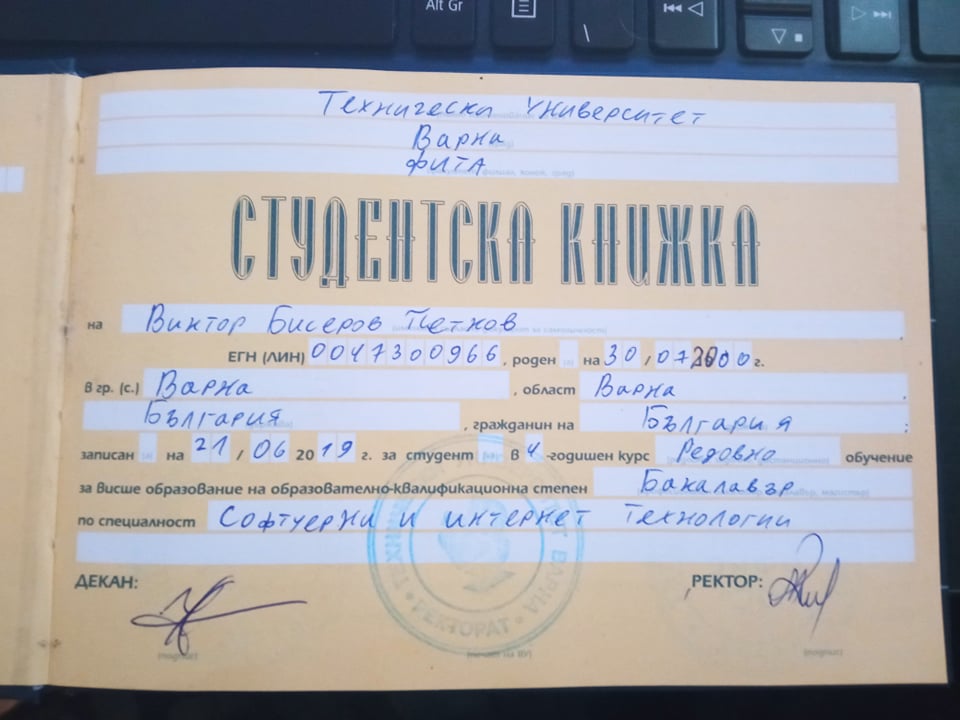 Alt Gr
Технически Университет
Варна
ФИТА
СТУДЕНТСКА КНИЖКА
на Виктор Бисеров Петков
ЕГН (ЛИН) 0047300966, роден на 30, 07 2000 г.
в гр. (с.) Варна, област Варна,
България, гражданин на България;
записан на 21, 06 2019 г. за студент в 4-годишен курс Редовно обучение
за висше образование на образователно-квалификационна степен Бакалавър
по специалност Софтуерни и интернет технологии
ДЕКАН: РЕКТОР:
РЕКТОРАТ ВАРНА
(подпис) (печат на ВУ) (подпис)